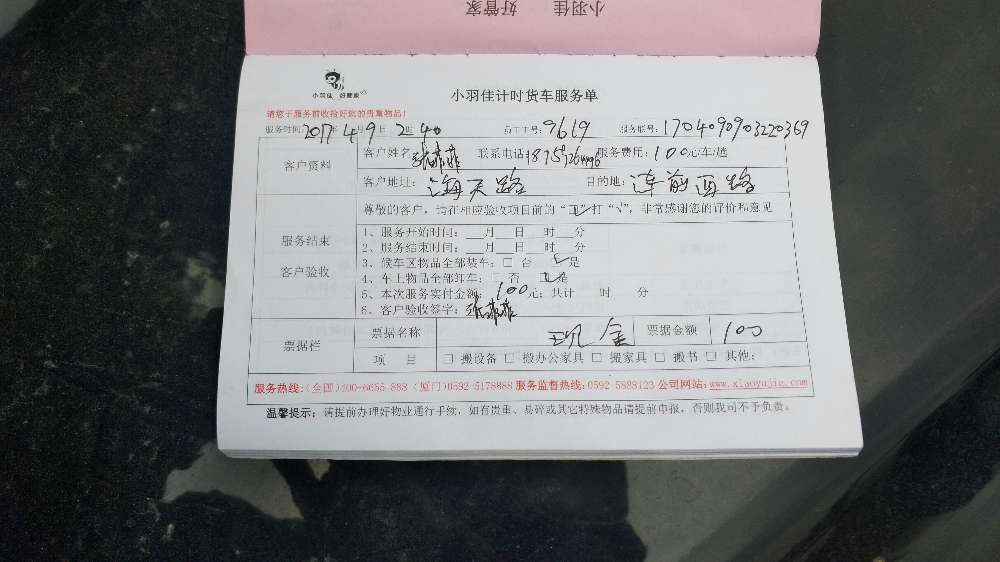 小羽佳 好管家
小羽佳 好管家
小羽佳计时货车服务单
请您于服务前收捡好您的贵重物品!
服务时间:2017年4月9日2时40 员工工号:9619 服务账号:1704090903220369
客户资料 客户姓名: 联系电话: 服务费用:100元/车/趟
客户地址:海天路 目的地:莲前西路
尊敬的客户,请在相应验收项目前的“口”打“√”,非常感谢您的评价和意见
服务结束
客户验收
1、服务开始时间:___月___日___时___分
2、服务结束时间:___月___日___时___分
3、候车区物品全部装车:□ 否 ☑是
4、车上物品全部卸车:□ 否 ☑是
5、本次服务实付金额:100元;共计 时 分
6、客户验收签字:
票据栏 票据名称 现金 票据金额 100
项 目 □ 搬设备 □ 搬办公家具 □ 搬家具 □ 搬书 □ 其他:
服务热线:(全国)400-6655-888 (厦门)0592-5178888 服务监督热线:0592-5888123 公司网站:www.xiaoyujia.com
温馨提示:请提前办理好物业通行手续,如有贵重、易碎或其它特殊物品请提前申报,否则我司不予负责。